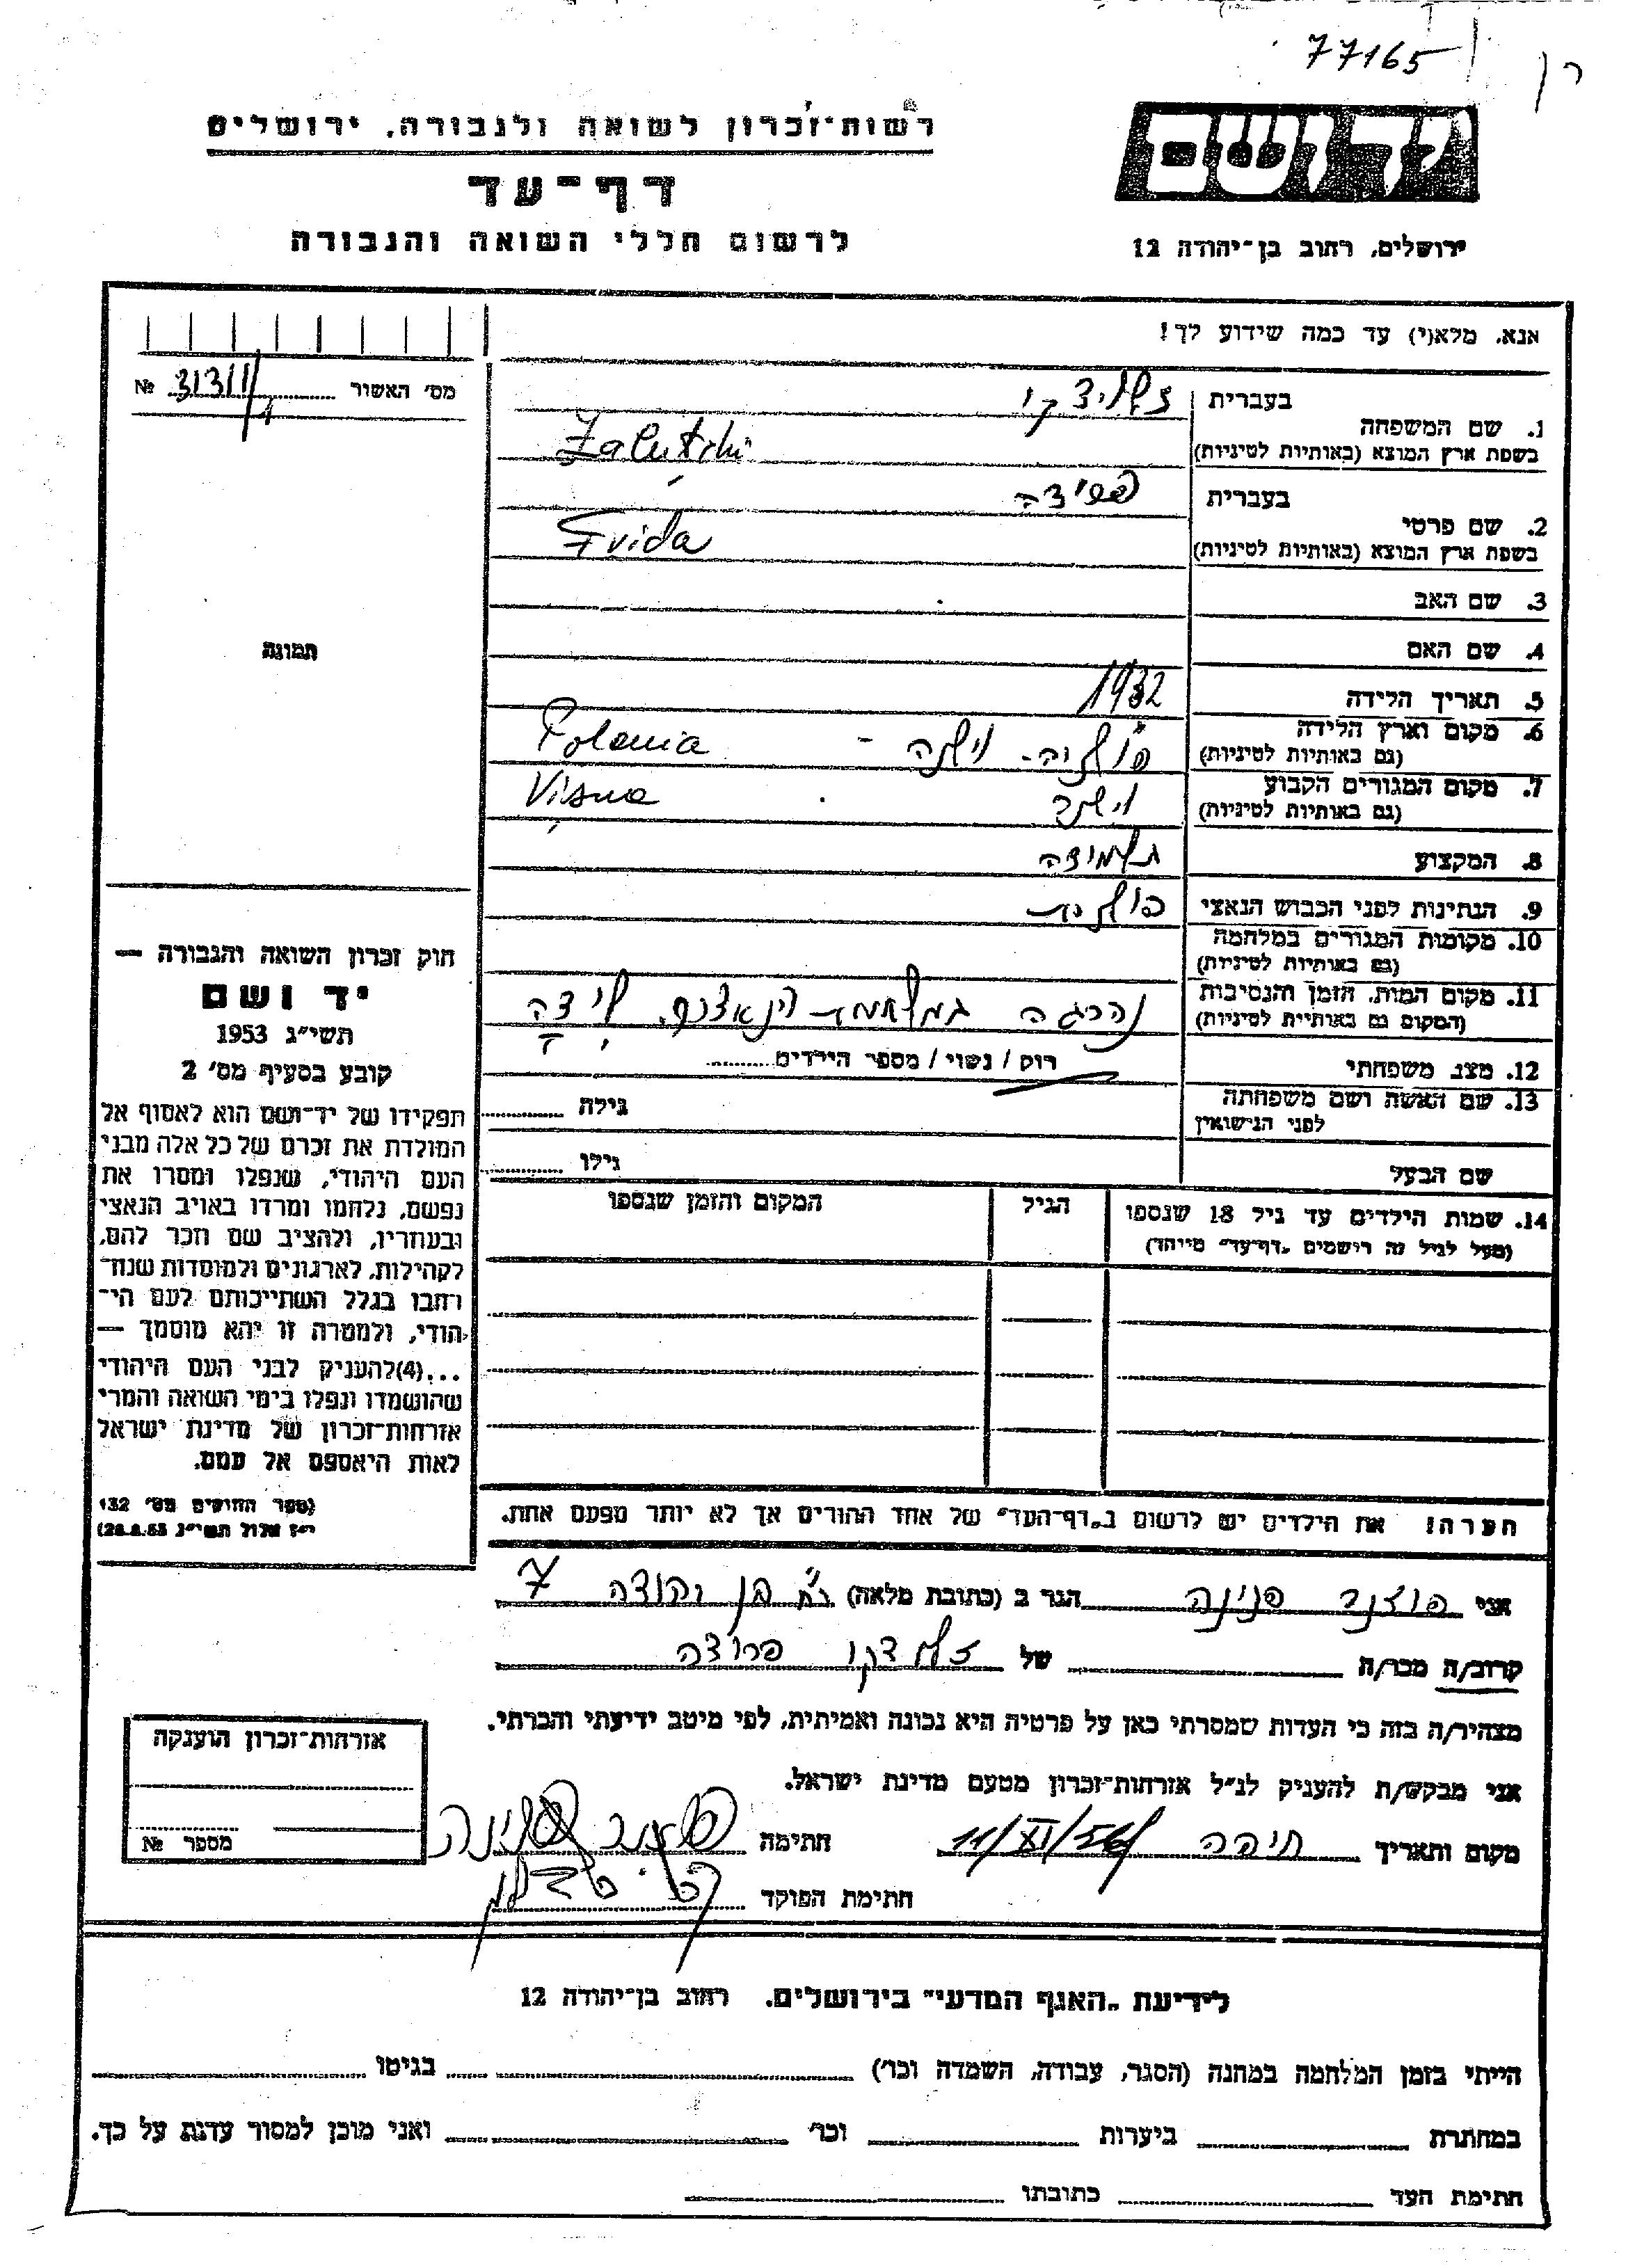 77165
רשות־זכרון לשואה ולגבורה, ירושלים
יד ושם
דף־עד
לרשום חללי השואה והגבורה
ירושלים, רחוב בן־יהודה 12
אנא, מלא(י) עד כמה שידוע לך!
מס' האשור № 
1. שם המשפחה
בעברית
בשפת ארץ המוצא (באותיות לטיניות)
2. שם פרטי
בעברית
בשפת ארץ המוצא (באותיות לטיניות) Frida
3. שם האב
4. שם האם
תמונה
5. תאריך הלידה 1932
6. מקום וארץ הלידה
(גם באותיות לטיניות) פולניה - וילנה - Polania
7. מקום המגורים הקבוע
(גם באותיות לטיניות) וילנה
8. המקצוע תלמידה
9. הנתינות לפני הכבוש הנאצי פולנית
10. מקומות המגורים במלחמה
(גם באותיות לטיניות)
11. מקום המות, הזמן והנסיבות
(המקום גם באותיות לטיניות) נהרגה במלחמת
12. מצב משפחתי רוק / נשוי / מספר הילדים
13. שם האשה ושם משפחתה
לפני הנישואין גילה
שם הבעל גילו
14. שמות הילדים עד גיל 18 שנספו הגיל המקום והזמן שנספו
(מעל לגיל זה רישמים "דף־עד" מיוחד)
חוק זכרון השואה והגבורה —
יד ושם
תשי״ג 1953
קובע בסעיף מס' 2
תפקידו של יד־ושם הוא לאסוף אל
המולדת את זכרם של כל אלה מבני
העם היהודי, שנפלו ומסרו את
נפשם, נלחמו ומרדו באויב הנאצי
ובעוזריו, ולהציב שם וזכר להם,
לקהילות, לארגונים ולמוסדות שנח־
רבו בגלל השתייכותם לעם הי־
הודי, ולמטרה זו יהא מוסמך —
...(4)להעניק לבני העם היהודי
שהושמדו ונפלו בימי השואה והמרי
אזרחות־זכרון של מדינת ישראל
לאות היאספם אל עמם.
(ספר החוקים מס' 132
י״ז אלול תשי״ג 28.8.53)
הערה! את הילדים יש לרשום ב"דף־העד" של אחד ההורים אך לא יותר מפעם אחת.
אני פוזנר פנינה הגר ב (כתובת מלאה) רח' בן יהודה 7
קרוב/ה מכר/ה של
מצהיר/ה בזה כי העדות שמסרתי כאן על פרטיה היא נכונה ואמיתית, לפי מיטב ידיעתי והכרתי.
אני מבקש/ת להעניק לנ״ל אזרחות־זכרון מטעם מדינת ישראל.
מקום ותאריך חיפה 11/XI/56 חתימה
חתימת הפוקד
אזרחות־זכרון הוענקה
מספר №
לידיעת "האגף המדעי" בירושלים, רחוב בן־יהודה 12
הייתי בזמן המלחמה במחנה (הסגר, עבודה, השמדה וכו') בגיטו
במחתרת ביערות וכו' ואני מוכן למסור עדות על כך.
חתימת העד כתובתו